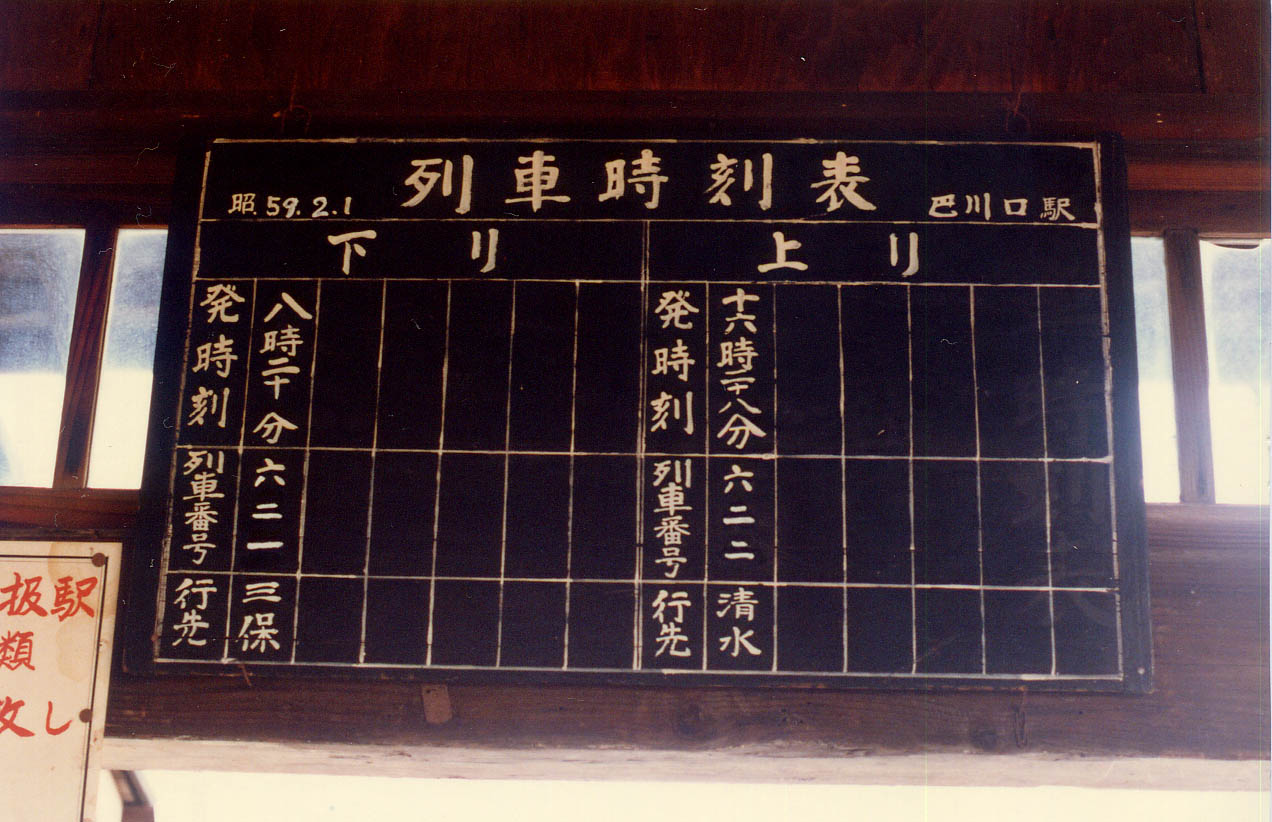 列車時刻表
昭.59.2.1
巴川口駅
下り
上り
発時刻
八時二十分
発時刻
十六時二十八分
列車番号
六二一
列車番号
六二二
行先
三保
行先
清水
扱駅
類
し